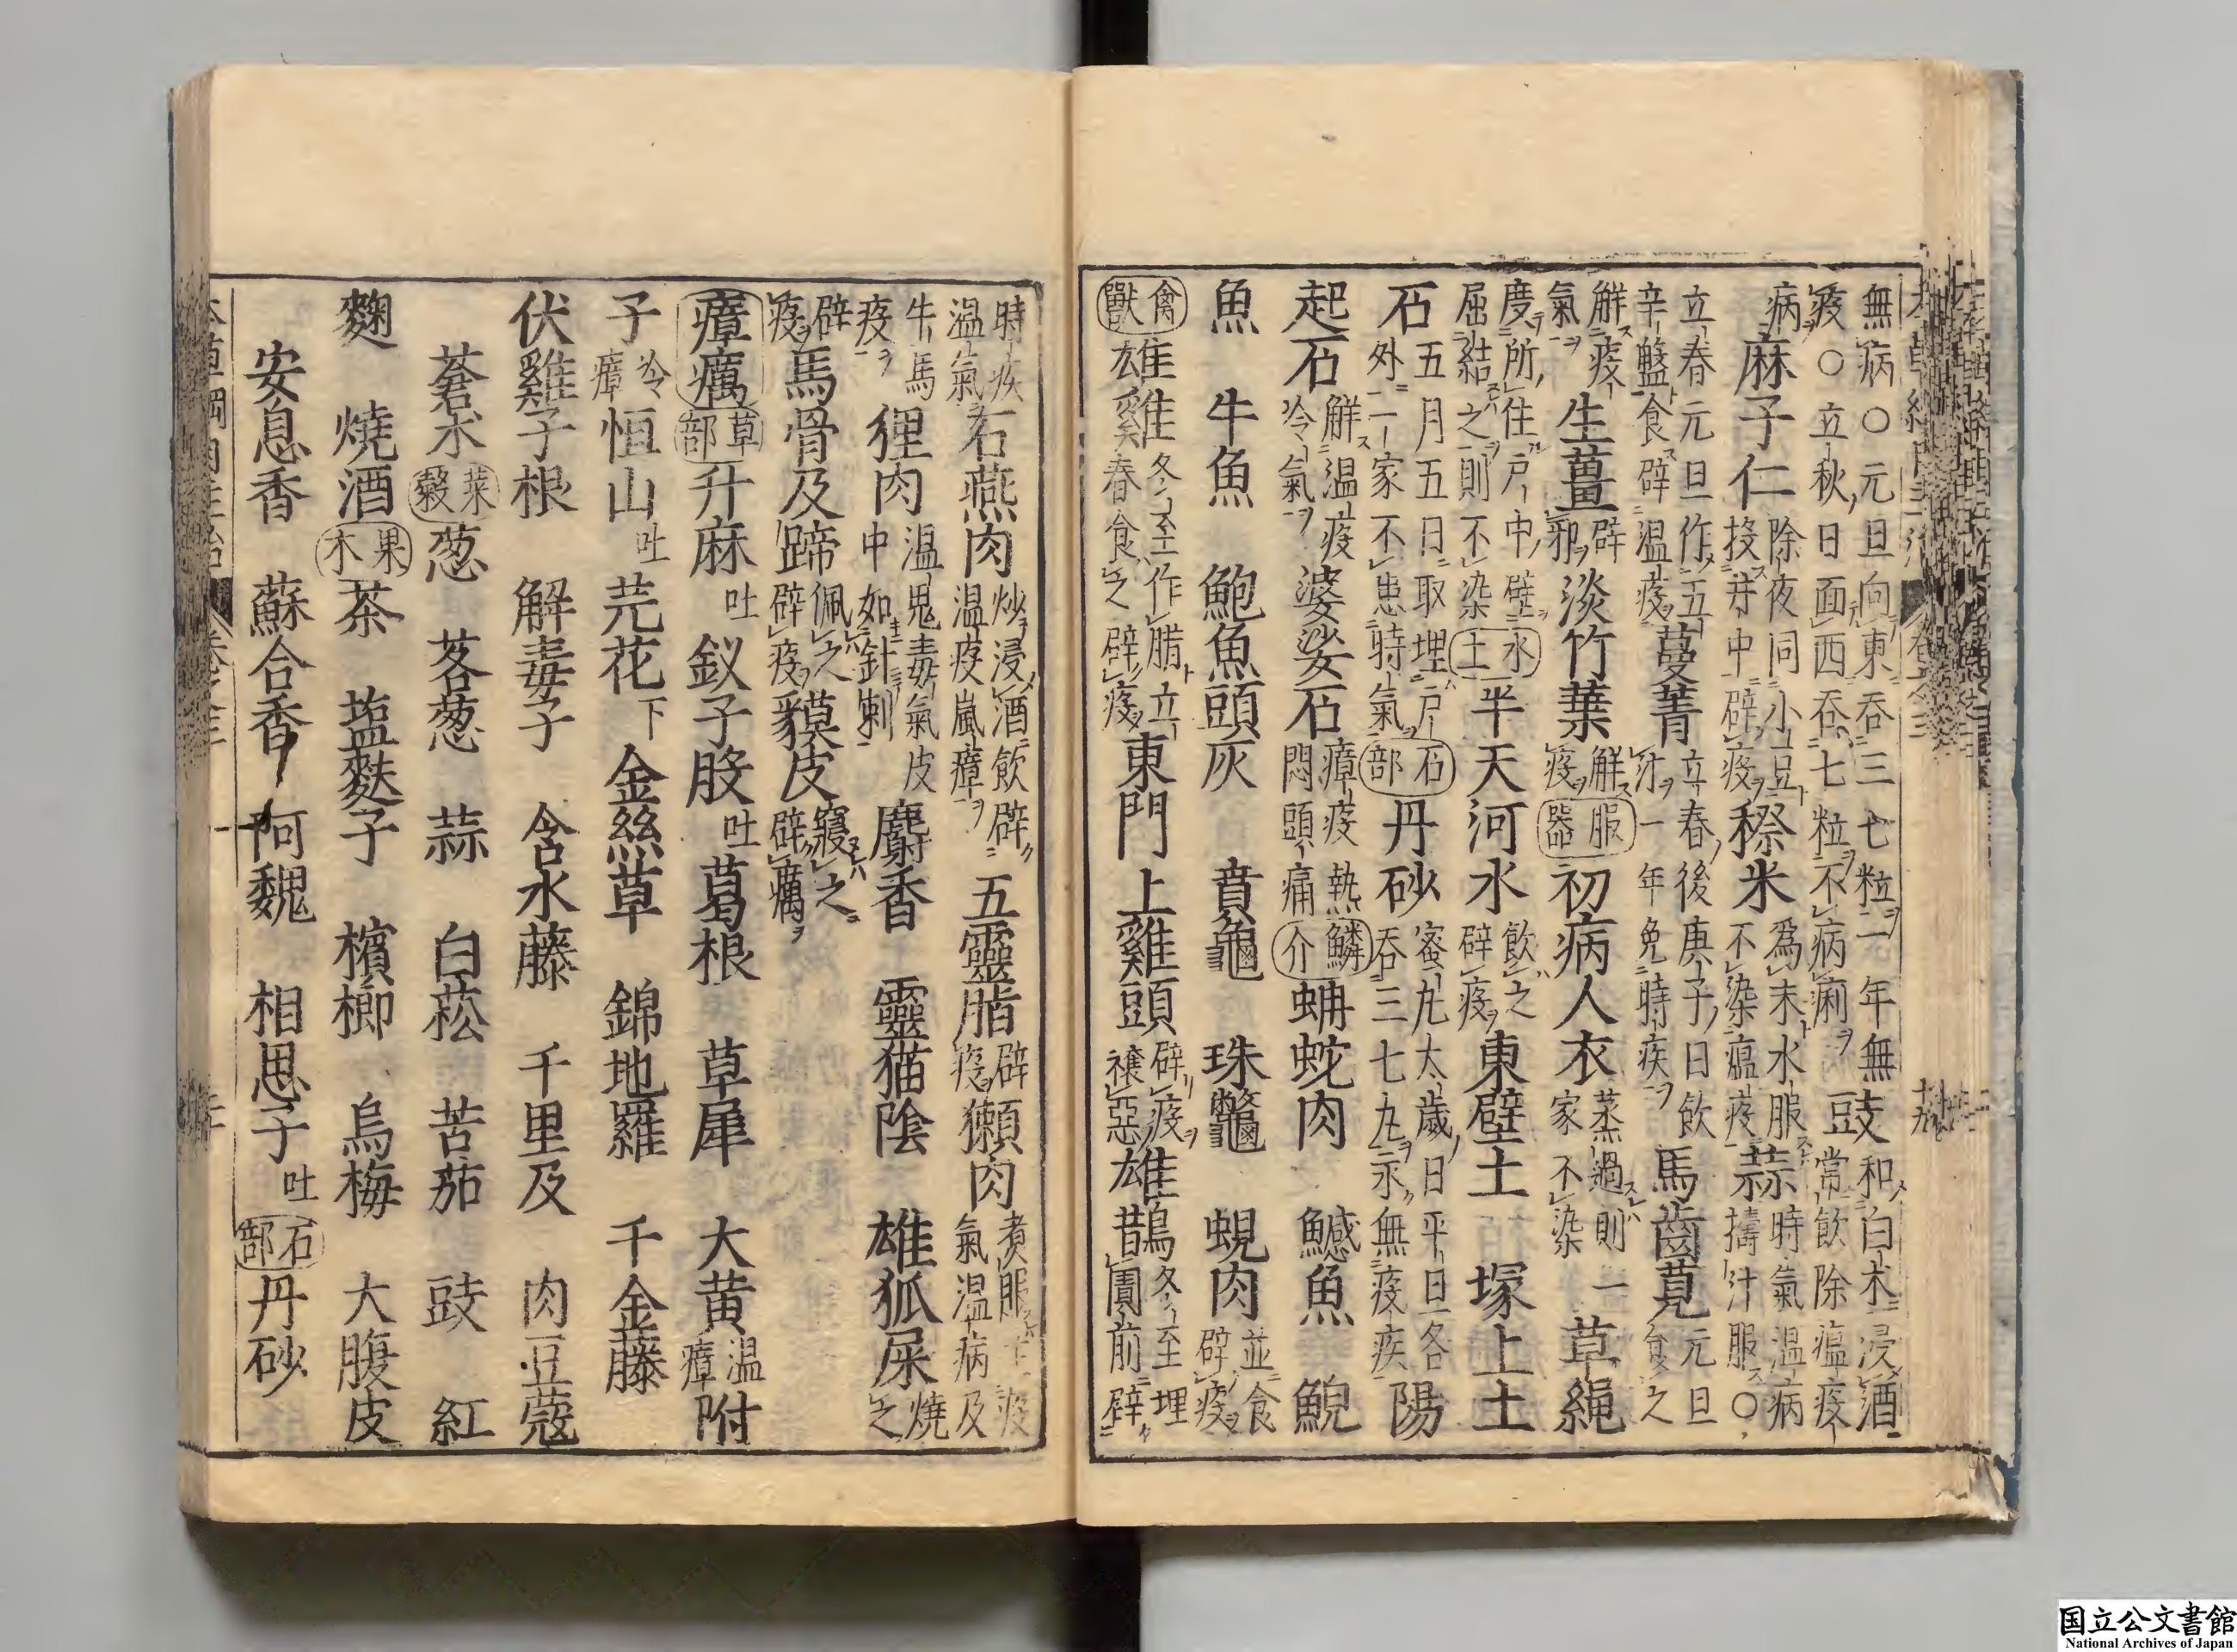 無病○元旦向東吞三七粒一年無疫○立秋日面西吞七粒不病痢 豉 和白朮浸酒常飲除瘟疫
病 麻子仁 除夜同小豆投井中辟疫 穄米 為末水服不染瘟疫 蒜 時氣温病擣汁服○
立春元旦作五辛盤食辟温疫 蔓菁 立春後庚子日飲汁一年免時疾 馬齒莧 元旦食之
解疫氣 生薑 辟邪 淡竹葉 解疫 服器 初病人衣 蒸過則一家不染 草繩
度所住戶中壁屈結之則不染 水土 半天河水 飲之辟疫 東壁土 塚上土
石 五月五日取埋戶外一家不患時氣 石部 丹砂 蜜丸太歲日平旦各吞三七丸永無疫疾 陽
起石 解温疫冷氣 婆娑石 瘴疫熱悶頭痛 鱗介 蚺蛇肉 鱤魚 鯢
魚 牛魚 鮑魚頭灰 賁龜 珠鼈 蜆肉 並食辟疫
禽獸 雄雞 冬至作腊立春食之辟疫 東門上雞頭 辟疫禳惡 雄鵲 冬至埋圊前辟
時疾温氣 石燕肉 炒浸酒飲辟温疫嵐瘴 五靈脂 辟疫 獺肉 煮服主疫氣温病及
牛馬疫 狸肉 温鬼毒氣皮中如針刺 麝香 靈猫陰 雄狐屎 燒之
辟疫 馬骨及蹄 佩之辟疫 貘皮 寢之辟癘
瘴癘 草部 升麻 吐 釵子股 吐 葛根 草犀 大黃 温瘴 附
子 冷瘴 恒山 吐 芫花 下 金絲草 錦地羅 千金藤
伏雞子根 解毒子 含水藤 千里及 肉豆蔻
蒼朮 菜穀 葱 茖葱 蒜 白菘 苦茄 豉 紅
麴 燒酒 果木 茶 塩麩子 檳榔 烏梅 大腹皮
安息香 蘇合香 阿魏 相思子 吐 石部 丹砂
国立公文書館
National Archives of Japan